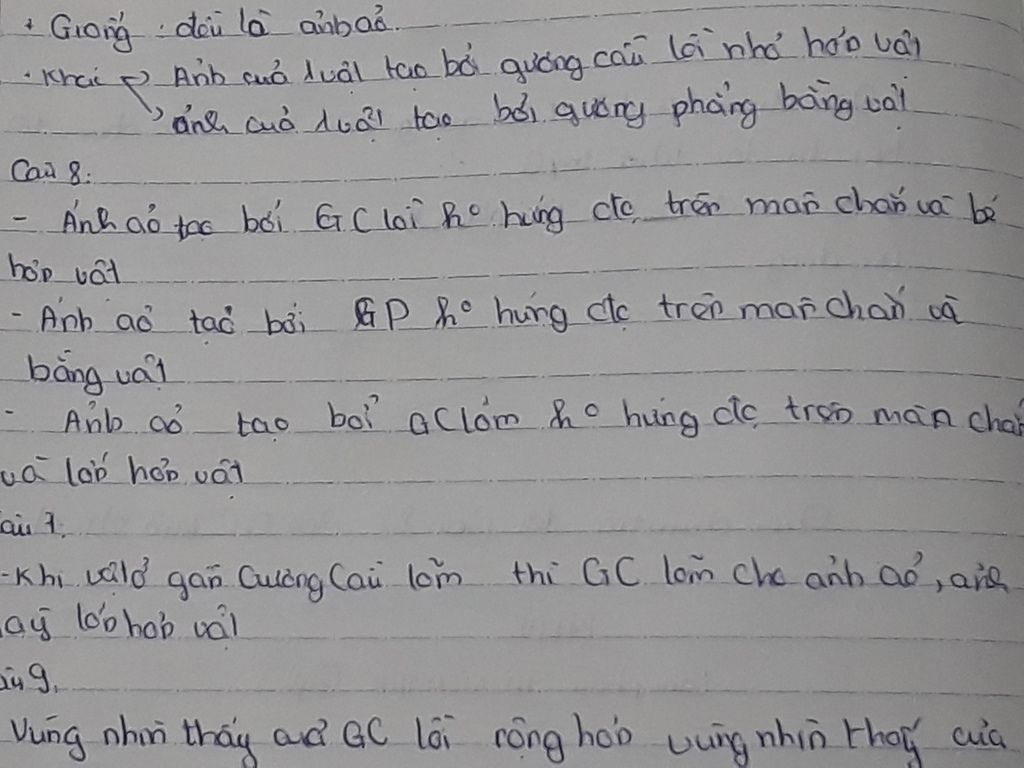 + Giống : đều là ảnh ảo.
· Khác → Ảnh của vật tạo bởi gương cầu lồi nhỏ hơn vật
→ ảnh của vật tạo bởi gương phẳng bằng vật
Câu 8:
- Ảnh ảo tạo bởi GC lồi ko hứng đc trên màn chắn và bé
hơn vật
- Ảnh ảo tạo bởi GP ko hứng đc trên màn chắn và
bằng vật
- Ảnh ảo tạo bởi GC lõm ko hứng đc trên màn chắn
và lớn hơn vật
âu 7:
- Khi vật ở gần Gương Cầu lõm thì GC lõm cho ảnh ảo, ảnh
ấy lớn hơn vật
âu 9.
Vùng nhìn thấy của GC lồi rộng hơn vùng nhìn thấy của